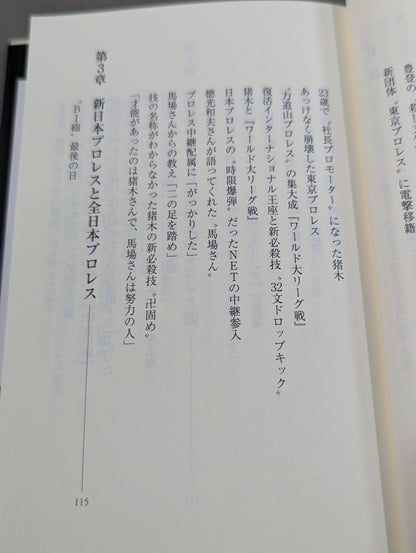 豊登の
新団体〝東京プロレス〟に電撃移籍
23歳で〝社長プロモーター〟になった猪木
あっけなく崩壊した東京プロレス
〝力道山プロレス〟の集大成『ワールド大リーグ戦』
復活インターナショナル王座と新必殺技〝32文ドロップキック〟
猪木と『ワールド大リーグ戦』
日本プロレスの〝時限爆弾〟だったNETの中継参入
徳光和夫さんが語ってくれた〝馬場さん〟
プロレス中継配属に「がっかりした」
馬場さんからの教え「二の足を踏め」
技の名称がわからなかった猪木の新必殺技〝卍固め〟
「才能があったのは猪木さんで、馬場さんは努力の人」
第3章 新日本プロレスと全日本プロレス 115
〝BI砲〟最後の日